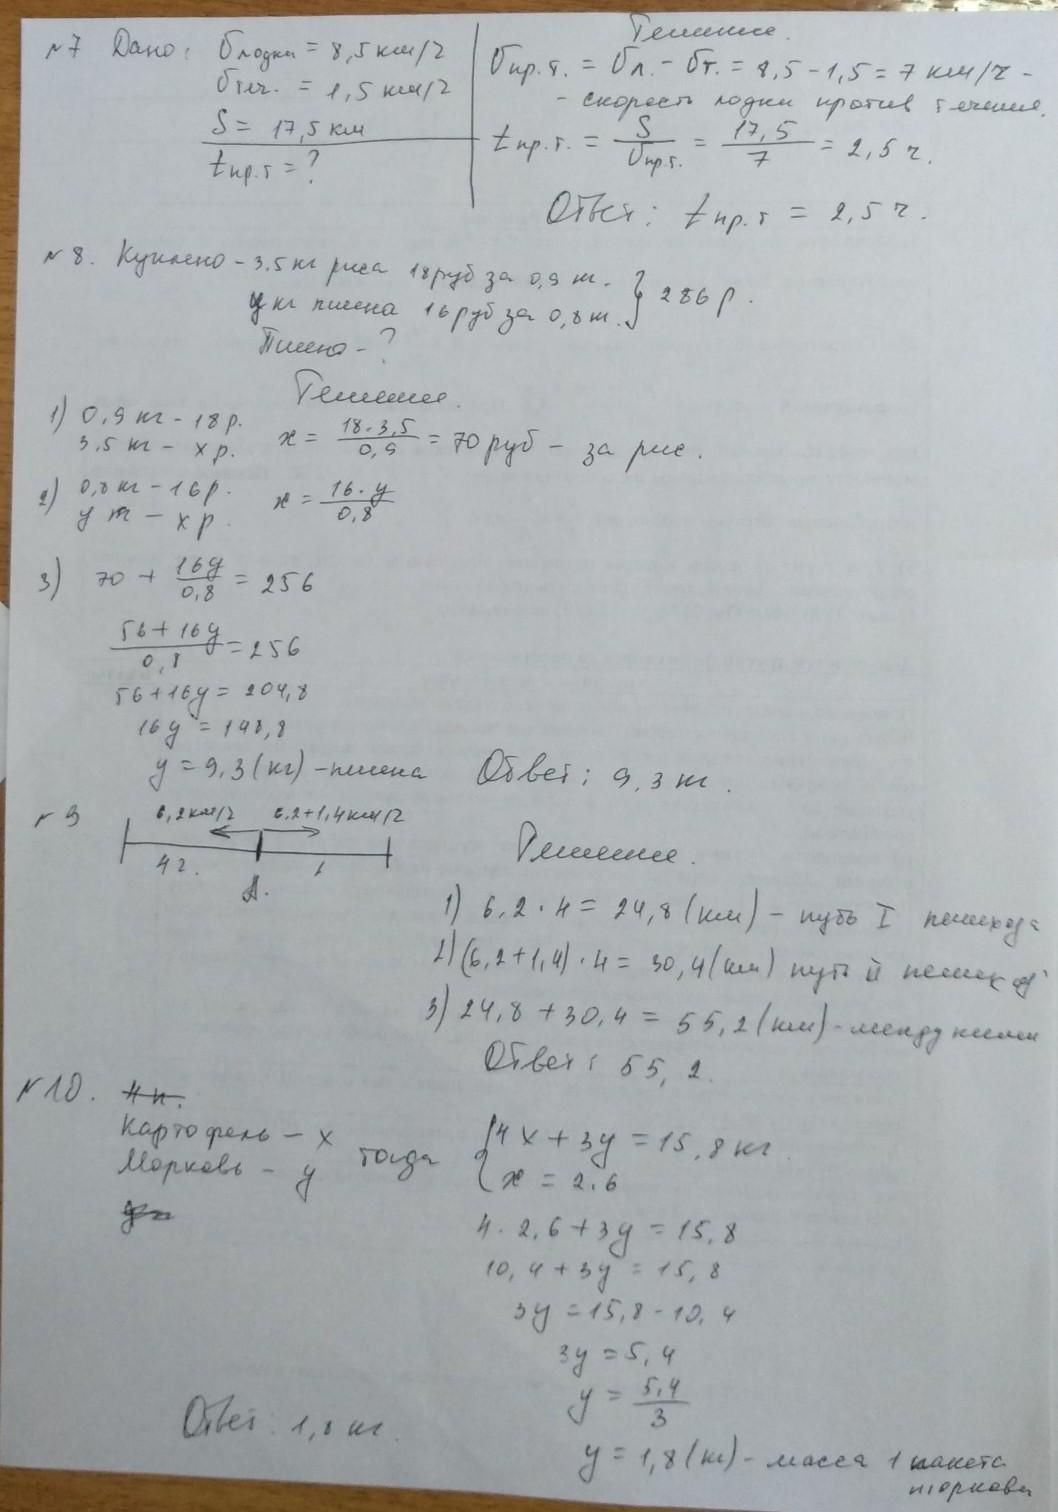 №7 Дано: υлодки = 8,5 км/ч
υтеч. = 1,5 км/ч
S = 17,5 км
tпр.т = ?
Решение.
υпр.т. = υл. - υт. = 8,5 - 1,5 = 7 км/ч -
- скорость лодки против течения.
tпр.т. = S/υпр.т. = 17,5/7 = 2,5 ч.
Ответ: tпр.т = 2,5 ч.
№8. Куплено - 3,5 кг риса 18 руб за 0,9 кг.
y кг пшена 16 руб за 0,8 кг. } 286 р.
Пшено - ?
Решение.
1) 0,9 кг - 18 р.
3,5 кг - x р.
x = 18·3,5/0,9 = 70 руб - за рис.
2) 0,8 кг - 16 р.
y кг - x р.
x = 16·y/0,8
3) 70 + 16y/0,8 = 256
56 + 16y/0,8 = 256
56 + 16y = 204,8
16y = 148,8
y = 9,3 (кг) - пшена
Ответ: 9,3 кг.
№9
6,2 км/ч 6,2+1,4 км/ч
4 ч.
А.
Решение.
1) 6,2 · 4 = 24,8 (км) - путь I пешехода
2) (6,2 + 1,4) · 4 = 30,4 (км) путь II пешеход
3) 24,8 + 30,4 = 55,2 (км) - между ними
Ответ: 55,2.
№10.
Картофель - x
Морковь - y тогда
{ 4x + 3y = 15,8 кг.
x = 2.6
4 · 2,6 + 3y = 15,8
10,4 + 3y = 15,8
3y = 15,8 - 10,4
3y = 5,4
y = 5,4/3
y = 1,8 (кг) - масса 1 пакета
моркови
Ответ: 1,8 кг.